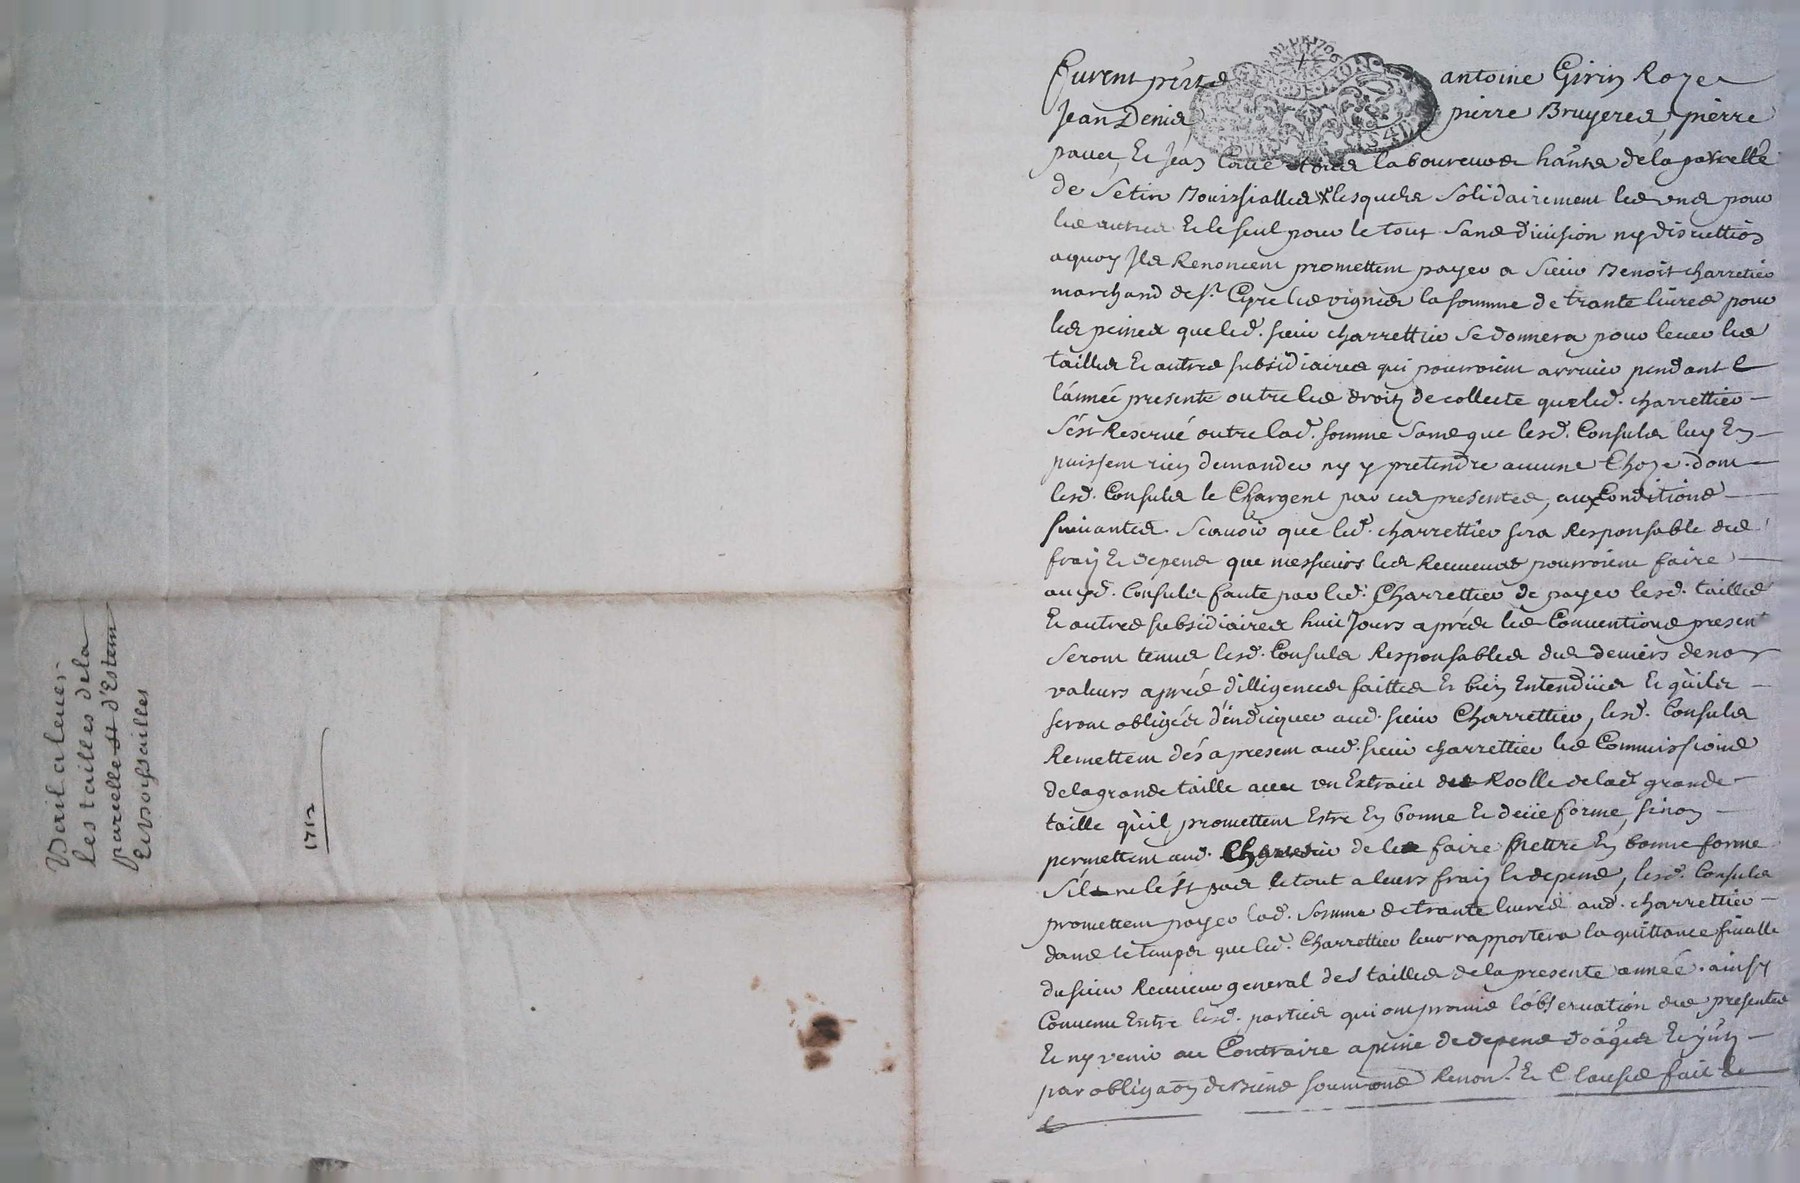 Furent pñts antoine Girin Roze
Jean Denis pierre Bruyeres, pierre
et Jean laboureurs hãnts de la parcelle
de lesquels solidairement les uns pour
les autres et le seul pour le tout sans division ny discution
aquoy Ils Renoncent promettent payer a sieur Benoist charretier
marchand de St. Cyre les vignes la somme de trante livres pour
les peines que led. sieur charrettier se donnera pour lever les
tailles et autres subsidiaires qui pourroient arriver pendant l
l'année presente outre les droitz de collecte que led. charrettier
s'est Reservé outre lad. somme sans que lesd. Consuls luy En
puissent rien demander ny y pretendre aucune Choze. dont
lesd. Consuls le Chargent par ces presentes, aux Conditions
suivantes. Scavoir que led. charrettier sera Responsable des
fraiz et depens que messieurs les Receveurs pourroient faire
ausd. Consuls faute par led. Charrettier de payer lesd. tailles
Et autres subsidiaires huit Jours aprés les Conventions present
seront tenus lesd. Consuls Responsables des deniers de non
valeurs aprés dilligences faittes Et bien Entendües Et qu'ils
seront obligés d'indicquer aud. sieur Charrettier, lesd. Consuls
Remettent dés a present aud. sieur charrettier les Commissions
de la grande taille avec un Extrait des Roolle de lad. grande
taille qu'il promettent Estre En bonne Et deüe forme, sinon
permettent aud. Charretier de les faire mettre En bonne forme
s'il ne l'est pas le tout a leurs fraiz et depens, lesd. Consuls
promettent payer lad. somme de trante livres aud. charrettier
dans le temps que led. Charrettier leur rapportera la quittance finalle
du sieur Receveur general des tailles de la presente année. ainsy
Convenu Entre lesd. parties qui ont promis l'observation des presentes
Et ny venir au Contraire a peine de depens
par obligãon de Biens soumõns Renon.s Et Clauses fait
Bail a lever
Les tailles de la
parcelle st d'Estenn
Et voissailles
1712